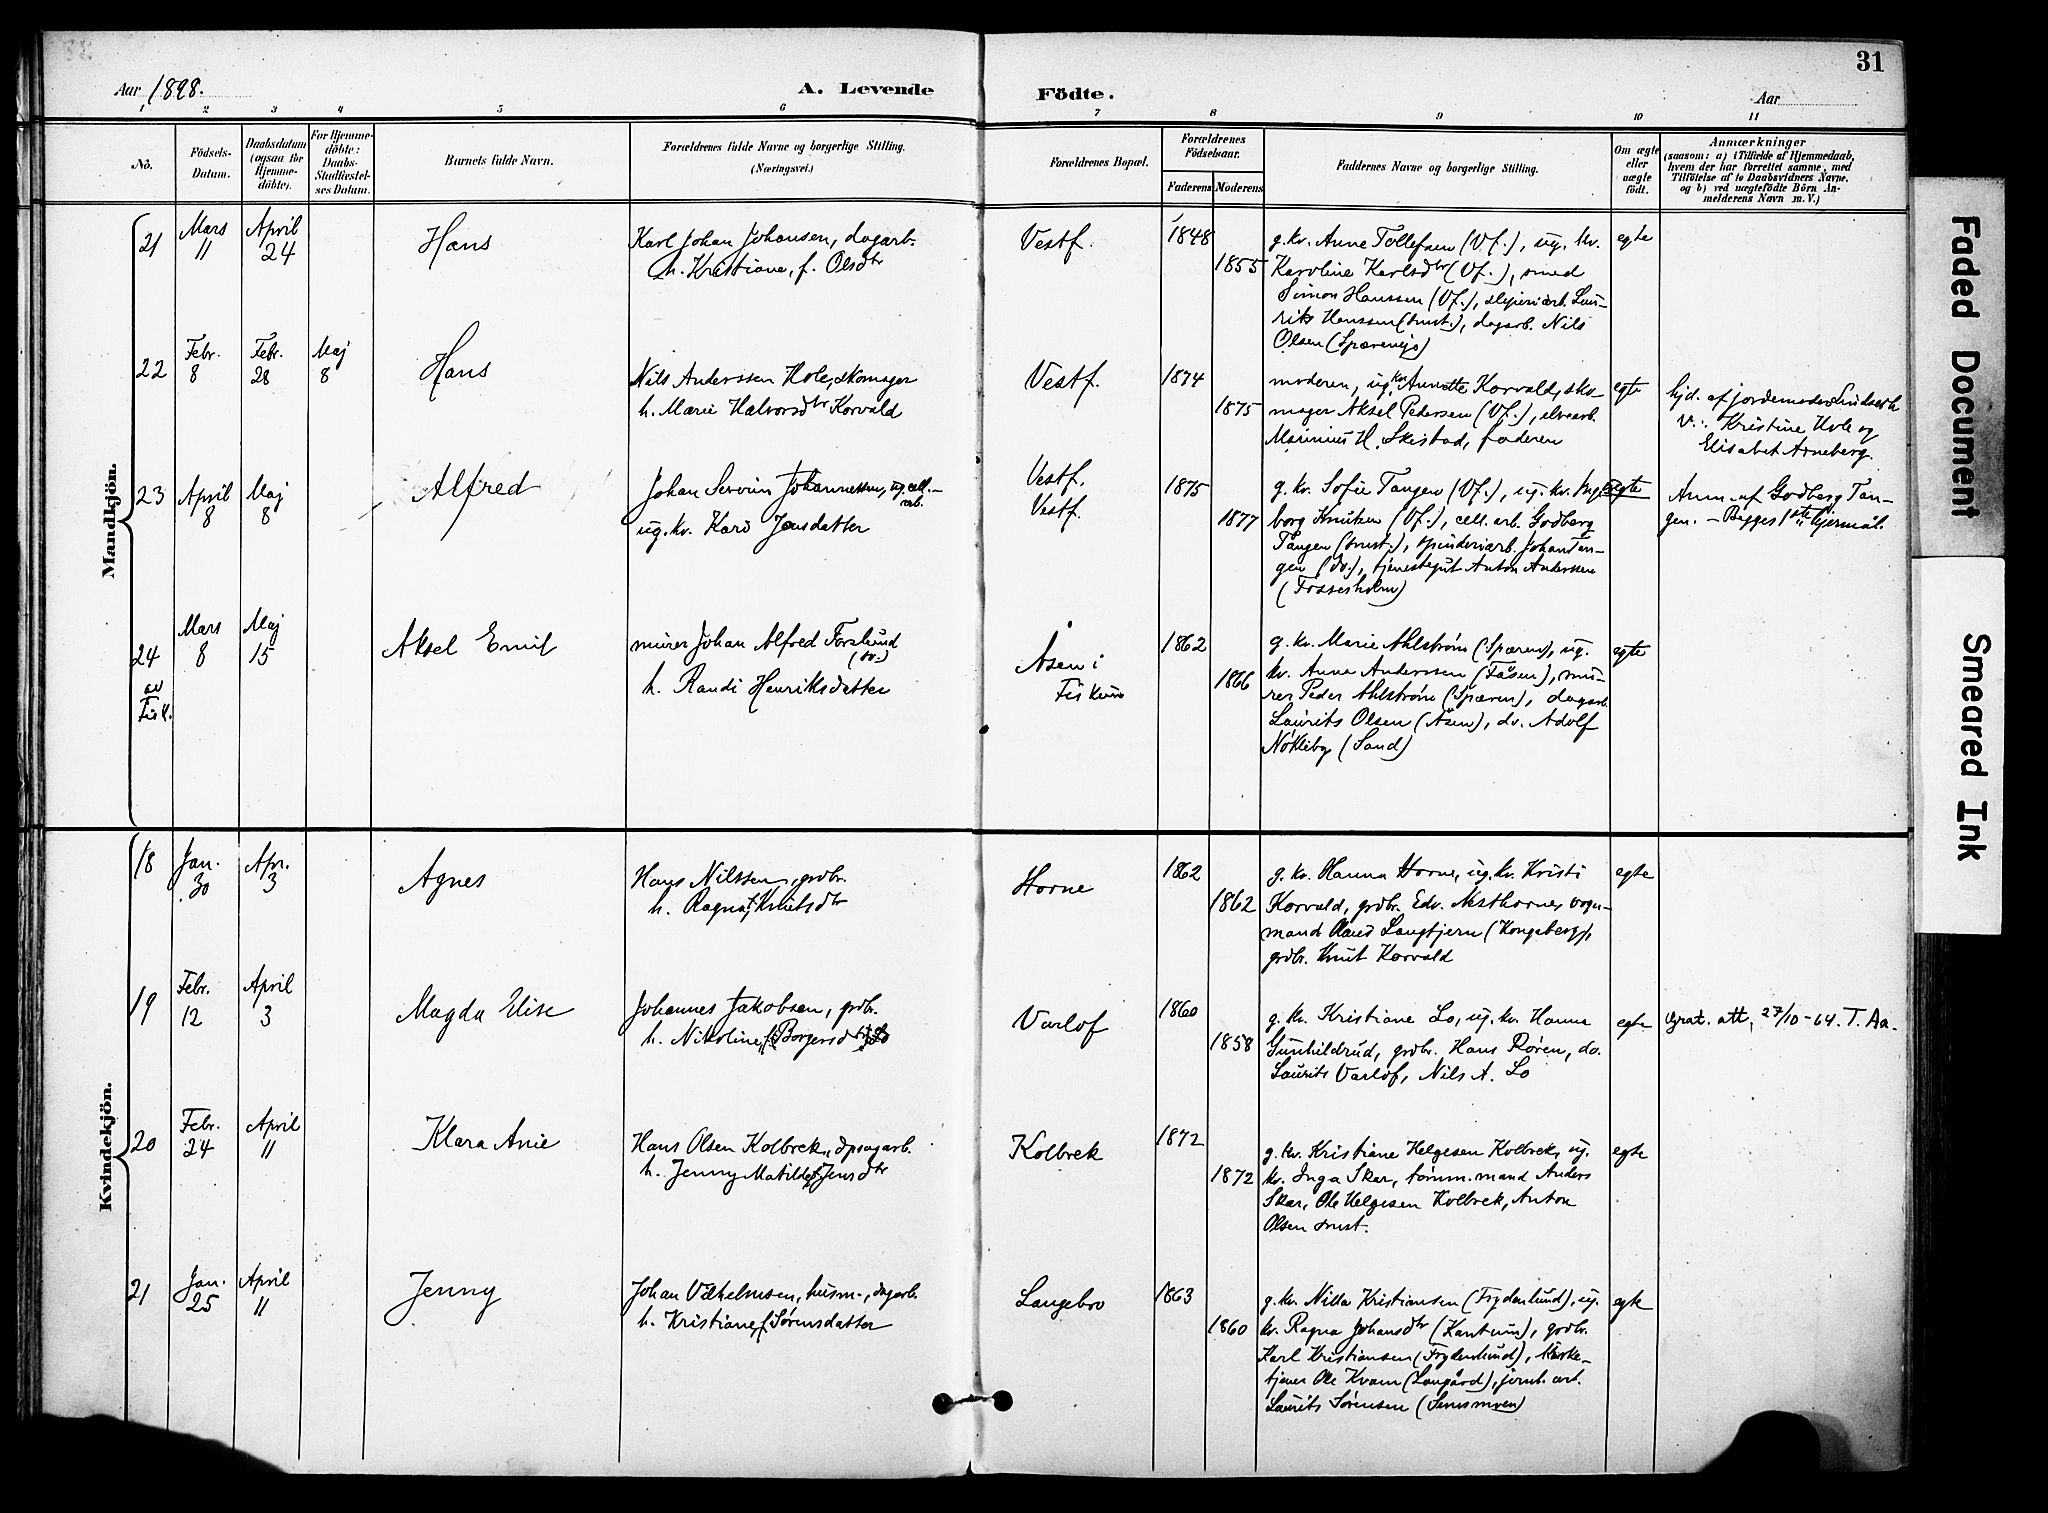 31
Aar 1898.
A. Levende Födte.
Aar
1 2 3 4 5 6 7 8 9 10 11
No.
Födsels-Datum.
Daabsdatum (ogsaa för Hjemme-döbte).
For Hjemme-döbte: Daabs-Stadfæstel-ses Datum.
Barnets fulde Navn.
Forældrenes fulde Navne og borgerlige Stilling. (Næringsvei.)
Forældrenes Bopæl.
Forældrenes Födselsaar.
Faderens Moderens
Faddernes Navne og borgerlige Stilling.
Om ægte eller uægte födt.
Anmærkninger
(saasom: a) i Tilfælde af Hjemmedaab, hvem der har forrettet samme, med Tilföielse af to Daabsvidners Navne. og b) ved uægtefödte Börn An-melderens Navn m. V.)
Mandkjön.
21
Mars 11
April 24
Hans
Karl Johan Johansen, dagarb.
h. Kristiane, f. Olsdtr
Vestf.
1848
1855
g. kv. Anne Tollefsen (Vf.), ug. kv.
Karoline Karlsdtr (Vf.), smed
Simon Hanssen (Vf.), sliperiarb. Lau-
rits Hanssen (smst.), dagarb. Nils
Olsen (Spærenejo)
egte
22
Febr. 8
Febr. 28
Maj 8
Hans
Nils Anderssen Hole, skomager
h. Marie Halvorsdtr Korvald
Vestf.
1874
1875
moderen, ug. kv. Annette Korvald, sko-
mager Aksel Pedersen (Vf.), elvearb.
Marinius H. Skistad, faderen
egte
hjd. af jordemoder Lindseth
V.: Kristine Hole og
Elisabet Arneberg.
23
April 8
Maj 8
Alfred
Johan Severin Johannessen, ug. cell.-
arb.
ug. kv. Kari Jensdatter
Vestf.
Vestf.
1875
1877
g. kv. Sofie Tangen (Vf.), ug. kv. Inge-
borg Knutsen (Vf.), cell. arb. Godberg
Tangen (smst.), spinderiarb. Johan Tan-
gen (do.), tjenestegut Anton Anderssen
(Fossesholm)
uegte
Anm. af Godberg Tan-
gen. - Begges 1ste lejermål.
24
av Fisk.
Mars 8
Maj 15
Aksel Emil
murer Johan Alfred Forslund
(sv.)
h. Randi Henriksdatter
Åsen i
Fiskum
1862
1866
g. kv. Marie Ahlstrøm (Spæren), ug.
kv. Anna Anderssen (Tåsen), mu-
rer Peder Ahlstrøm (Spæren), dagarb.
Laurits Olsen (Åsen), do. Adolf
Nøkleby (Sand)
egte
Kvindekjön.
18
Jan. 30
Apr. 3
Agnes
Hans Nilssen, grdbr.
h. Ragna, f. Knutsdtr
Horne
1862
1862
g. kv. Hanna Horne, ug. kv. Kristi
Korvald, grdbr. Edv. Nesthorne, vogn-
mand Olaus Langtjern (Kongsberg),
grdbr. Knut Korvald
egte
19
Febr. 12
April 3
Magda Elise
Johannes Jakobsen, grdbr.
h. Nikoline, f. Borgersdtr
Varlof
1860
1858
g. kv. Kristiane Lo, ug. kv. Hanna
Gunhildrud, grdbr. Hans Røren, do.
Laurits Varlof, Nils A. Lo
egte
Grat. att. 27/10-64. T. Aa.
20
Febr. 24
April 11
Klara Anie
Hans Olsen Kolbrek, dpsagarb.
h. Jenny Matilde f. Jensdtr
Kolbrek
1872
1872
g. kv. Kristiane Helgesen Kolbrek, ug.
kv. Inga Skar, tømm.mand Anders
Skar, Ole Helgesen Kolbrek, Anton
Olsen smst.
egte
21
Jan. 25
April 11
Jenny
Johan Vilhelmsen, husm., dagarb.
h. Kristiane, f. Sørensdatter
Langebro
1863
1860
g. kv. Nilla Kristiansen (Frydenlund), ug.
kv. Ragna Johansdtr (Kantum), grdbr.
Karl Kristiansen (Frydenlund), kirke-
tjener Ole Kvam (Langård), jernb. arb.
Laurits Sørensen (Semsmoen)
egte
Faded Document
Smeared Ink